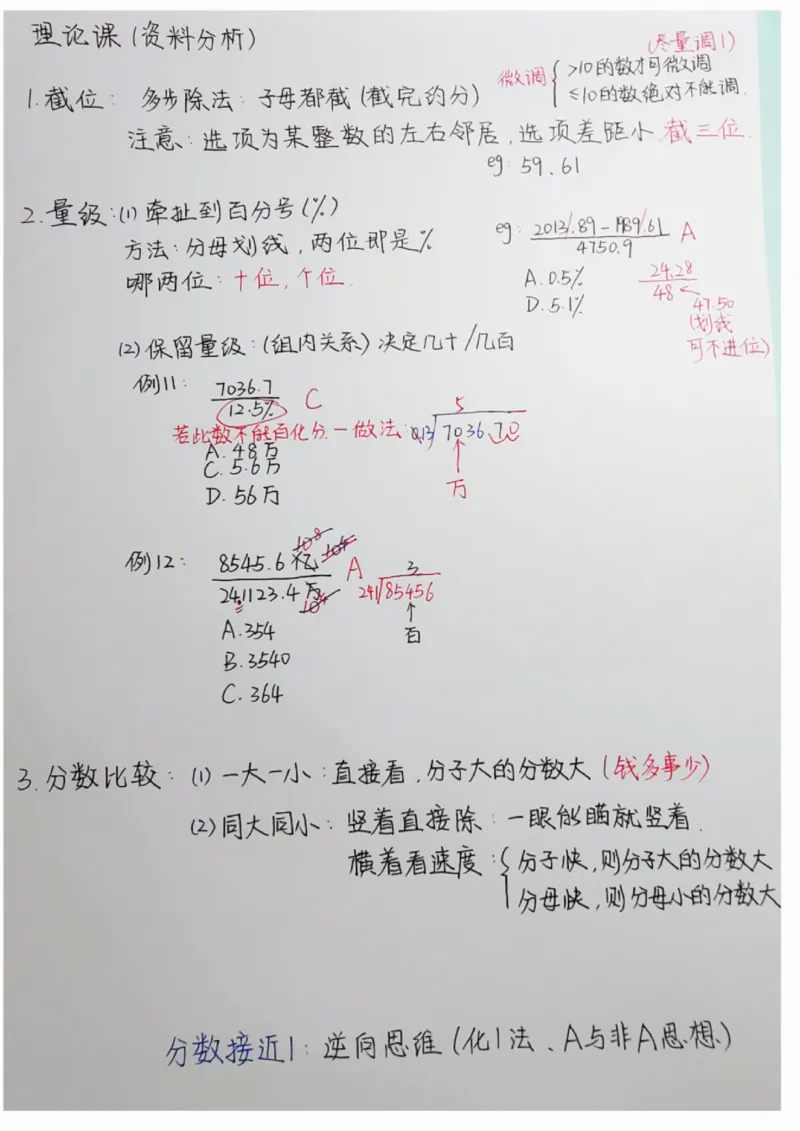 理论课(资料分析)
(尽量调1)
1.截位: 多步除法:子母都截(截完约分) 微调 { >10的数才可微调
≤10的数绝对不能调.
注意:选项为某整数的左右邻居,选项差距小 截三位.
eg: 59.61
2.量级:(1)牵扯到百分号(%)
方法:分母划线,两位即是%
哪两位:十位,个位.
eg: 2013.89-1989.61 A
4750.9
A.0.5%
D.5.1%
24.28
48
47.50
(划线
可不进位)
(2)保留量级:(组内关系)决定几十/几百
例11: 7036.7 C
12.5%
若此数不能百化分.一做法:
5
0.13 7036.70
万
A.48万
C.5.6万
D.56万
例12: 8545.6亿 10⁸ 10⁴ A
241123.4万 10⁴
3
241 85456
百
A.354
B.3540
C.364
3.分数比较:(1)一大一小:直接看,分子大的分数大(钱多事少)
(2)同大同小:竖着直接除:一眼能瞄就竖着.
横着看速度:{ 分子快,则分子大的分数大
分母快,则分母小的分数大
分数接近1:逆向思维(化1法、A与非A思想)